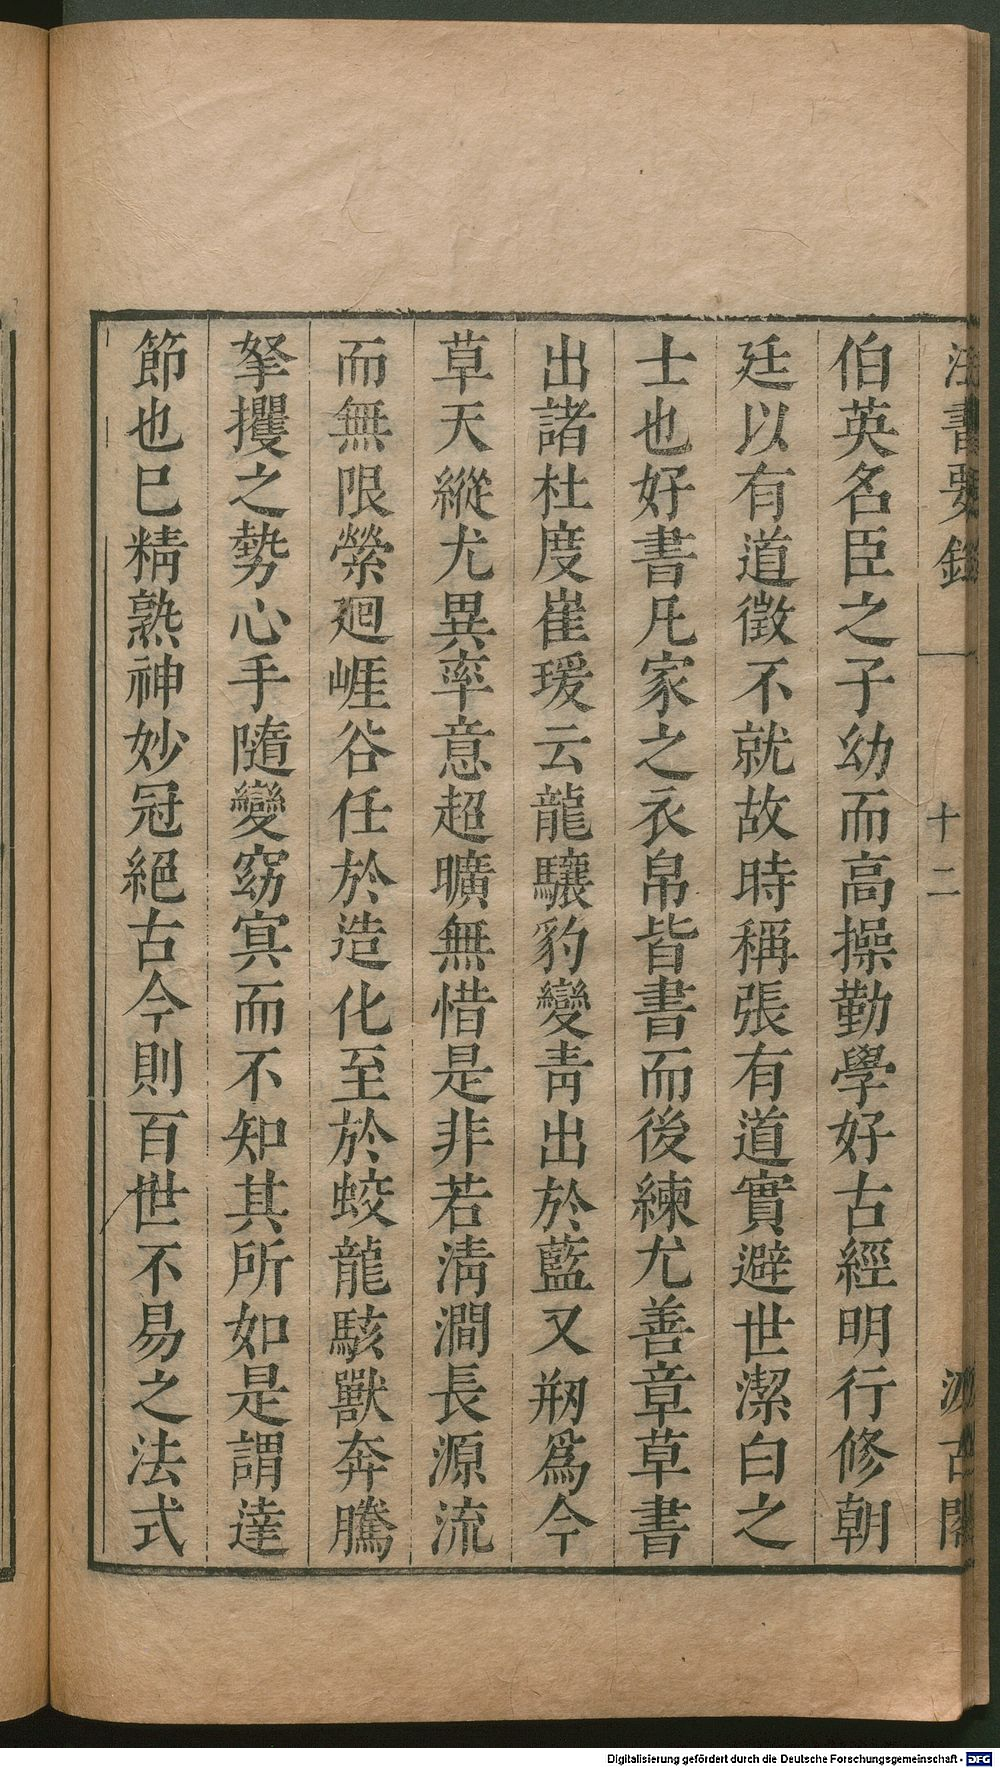 法書要錄
十二
汲古閣
伯英名臣之子幼而高操勤學好古經明行修朝
廷以有道徵不就故時稱張有道實避世潔白之
士也好書凡家之衣帛皆書而後練尤善章草書
出諸杜度崔瑗云龍驤豹變青出於藍又剏爲今
草天縱尤異率意超曠無惜是非若淸澗長源流
而無限縈廻崕谷任於造化至於蛟龍駭獸奔騰
拏攫之勢心手隨變窈冥而不知其所如是謂達
節也已精熟神妙冠絕古今則百世不易之法式
Digitalisierung gefördert durch die Deutsche Forschungsgemeinschaft - DFG